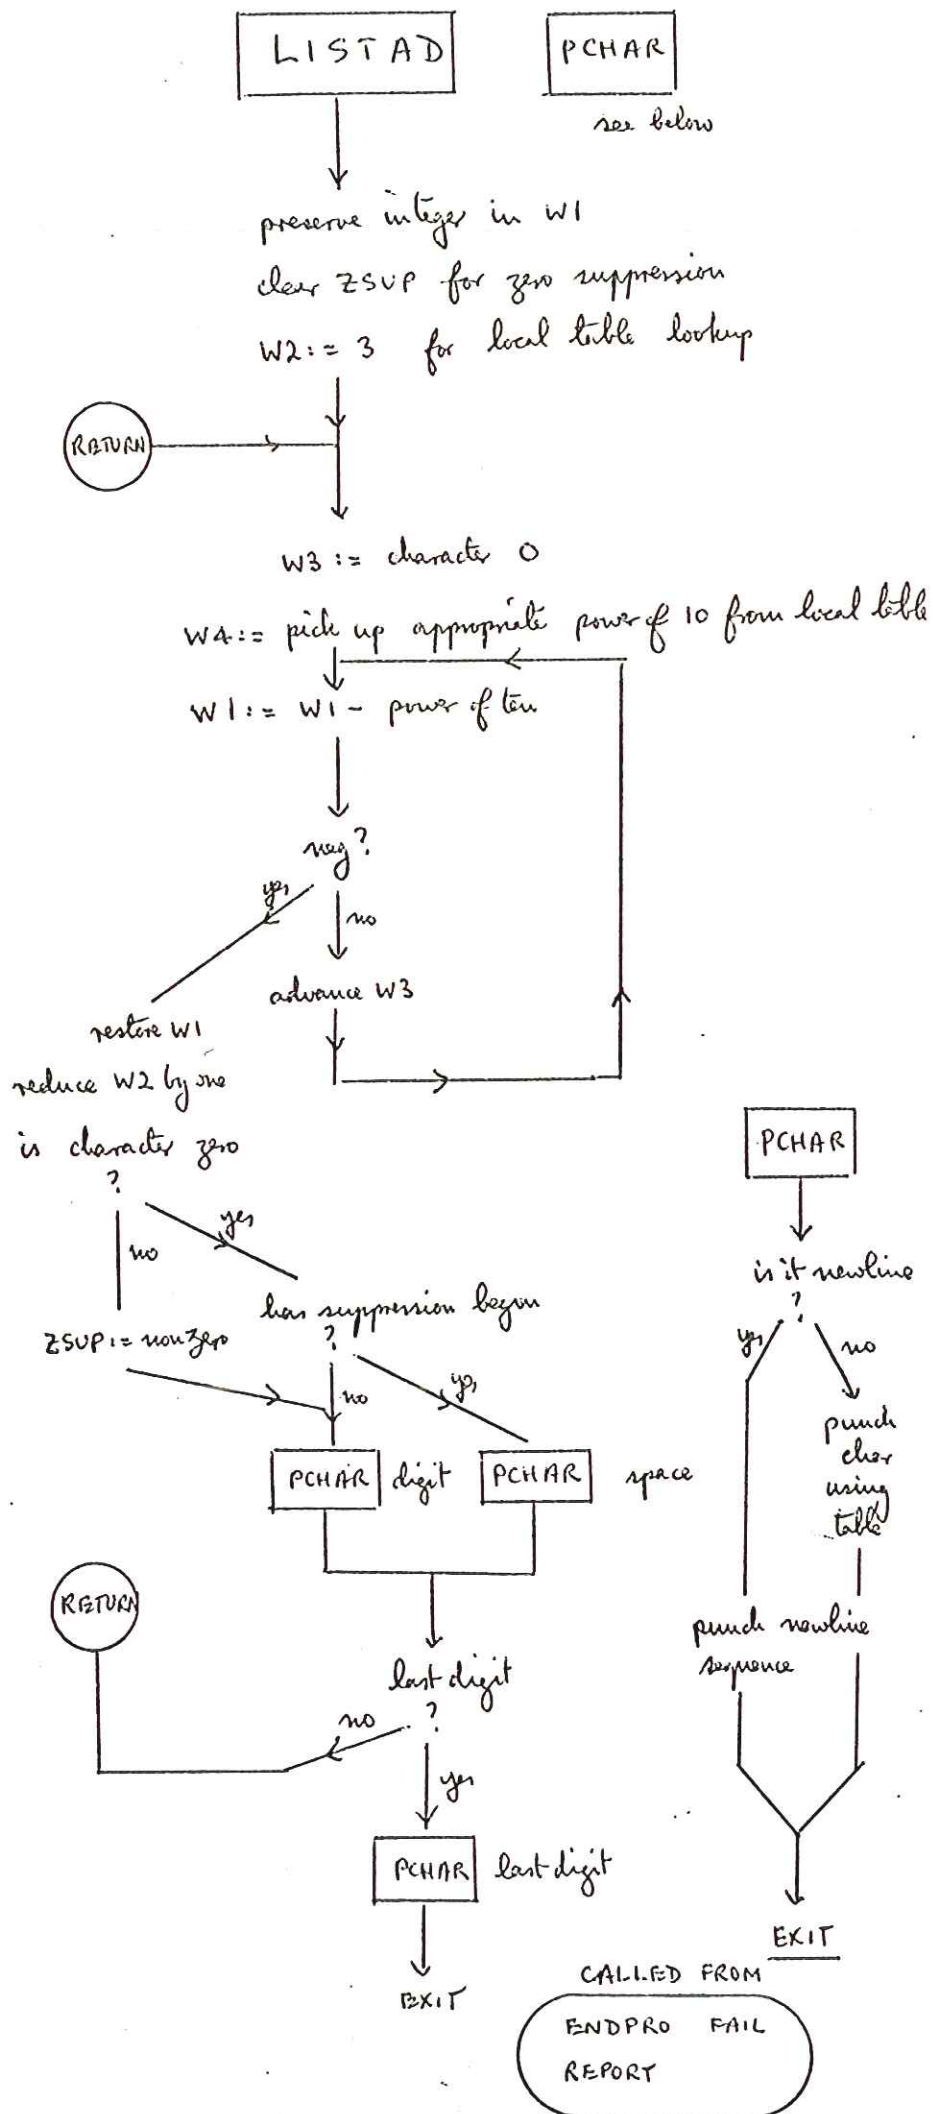 LISTAD
PCHAR
see below
preserve integer in W1
clear ZSUP for zero suppression
W2:= 3 for local table lookup
RETURN
W3 := character 0
W4:= pick up appropriate power of 10 from local table
W1:= W1 - power of ten
neg?
yes
no
advance W3
restore W1
reduce W2 by one
is character zero
?
yes
no
has suppression begun
?
ZSUP:= nonzero
no
yes
PCHAR digit
PCHAR space
RETURN
last digit
?
no
yes
PCHAR last digit
EXIT
PCHAR
is it newline
?
yes
no
punch
char
using
table
punch newline
sequence
EXIT
CALLED FROM
ENDPRO FAIL
REPORT